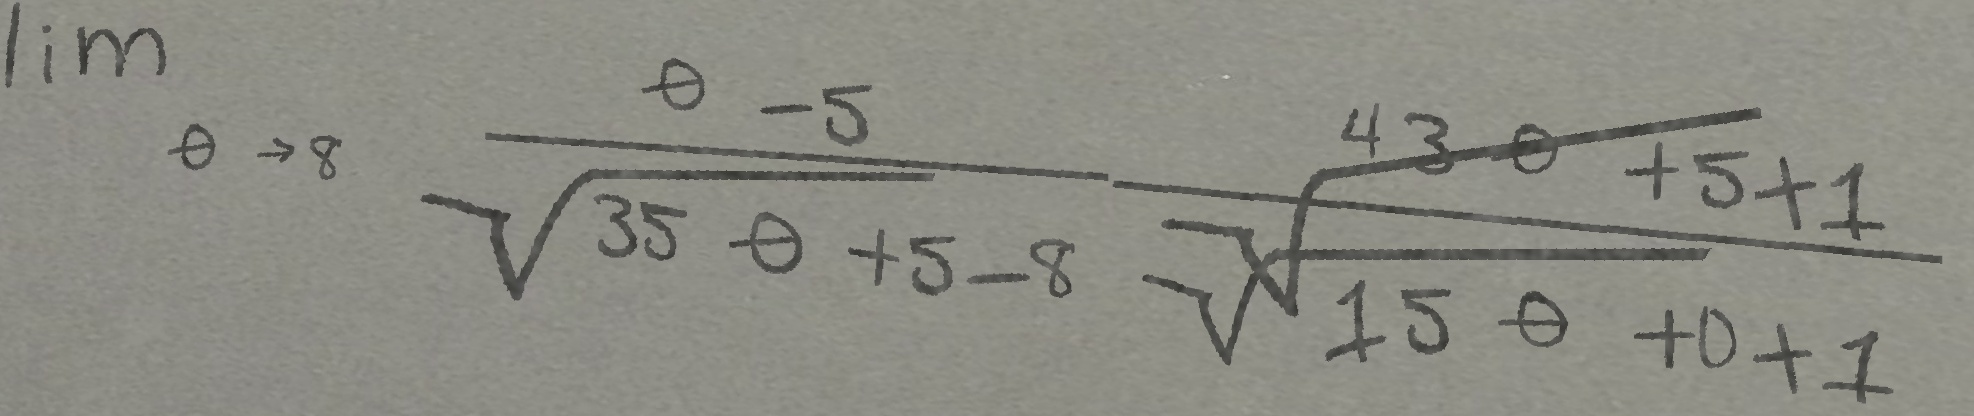 lim θ→8 θ-5 / √35θ+5-8 √43θ+5+1 / √15θ+0+1